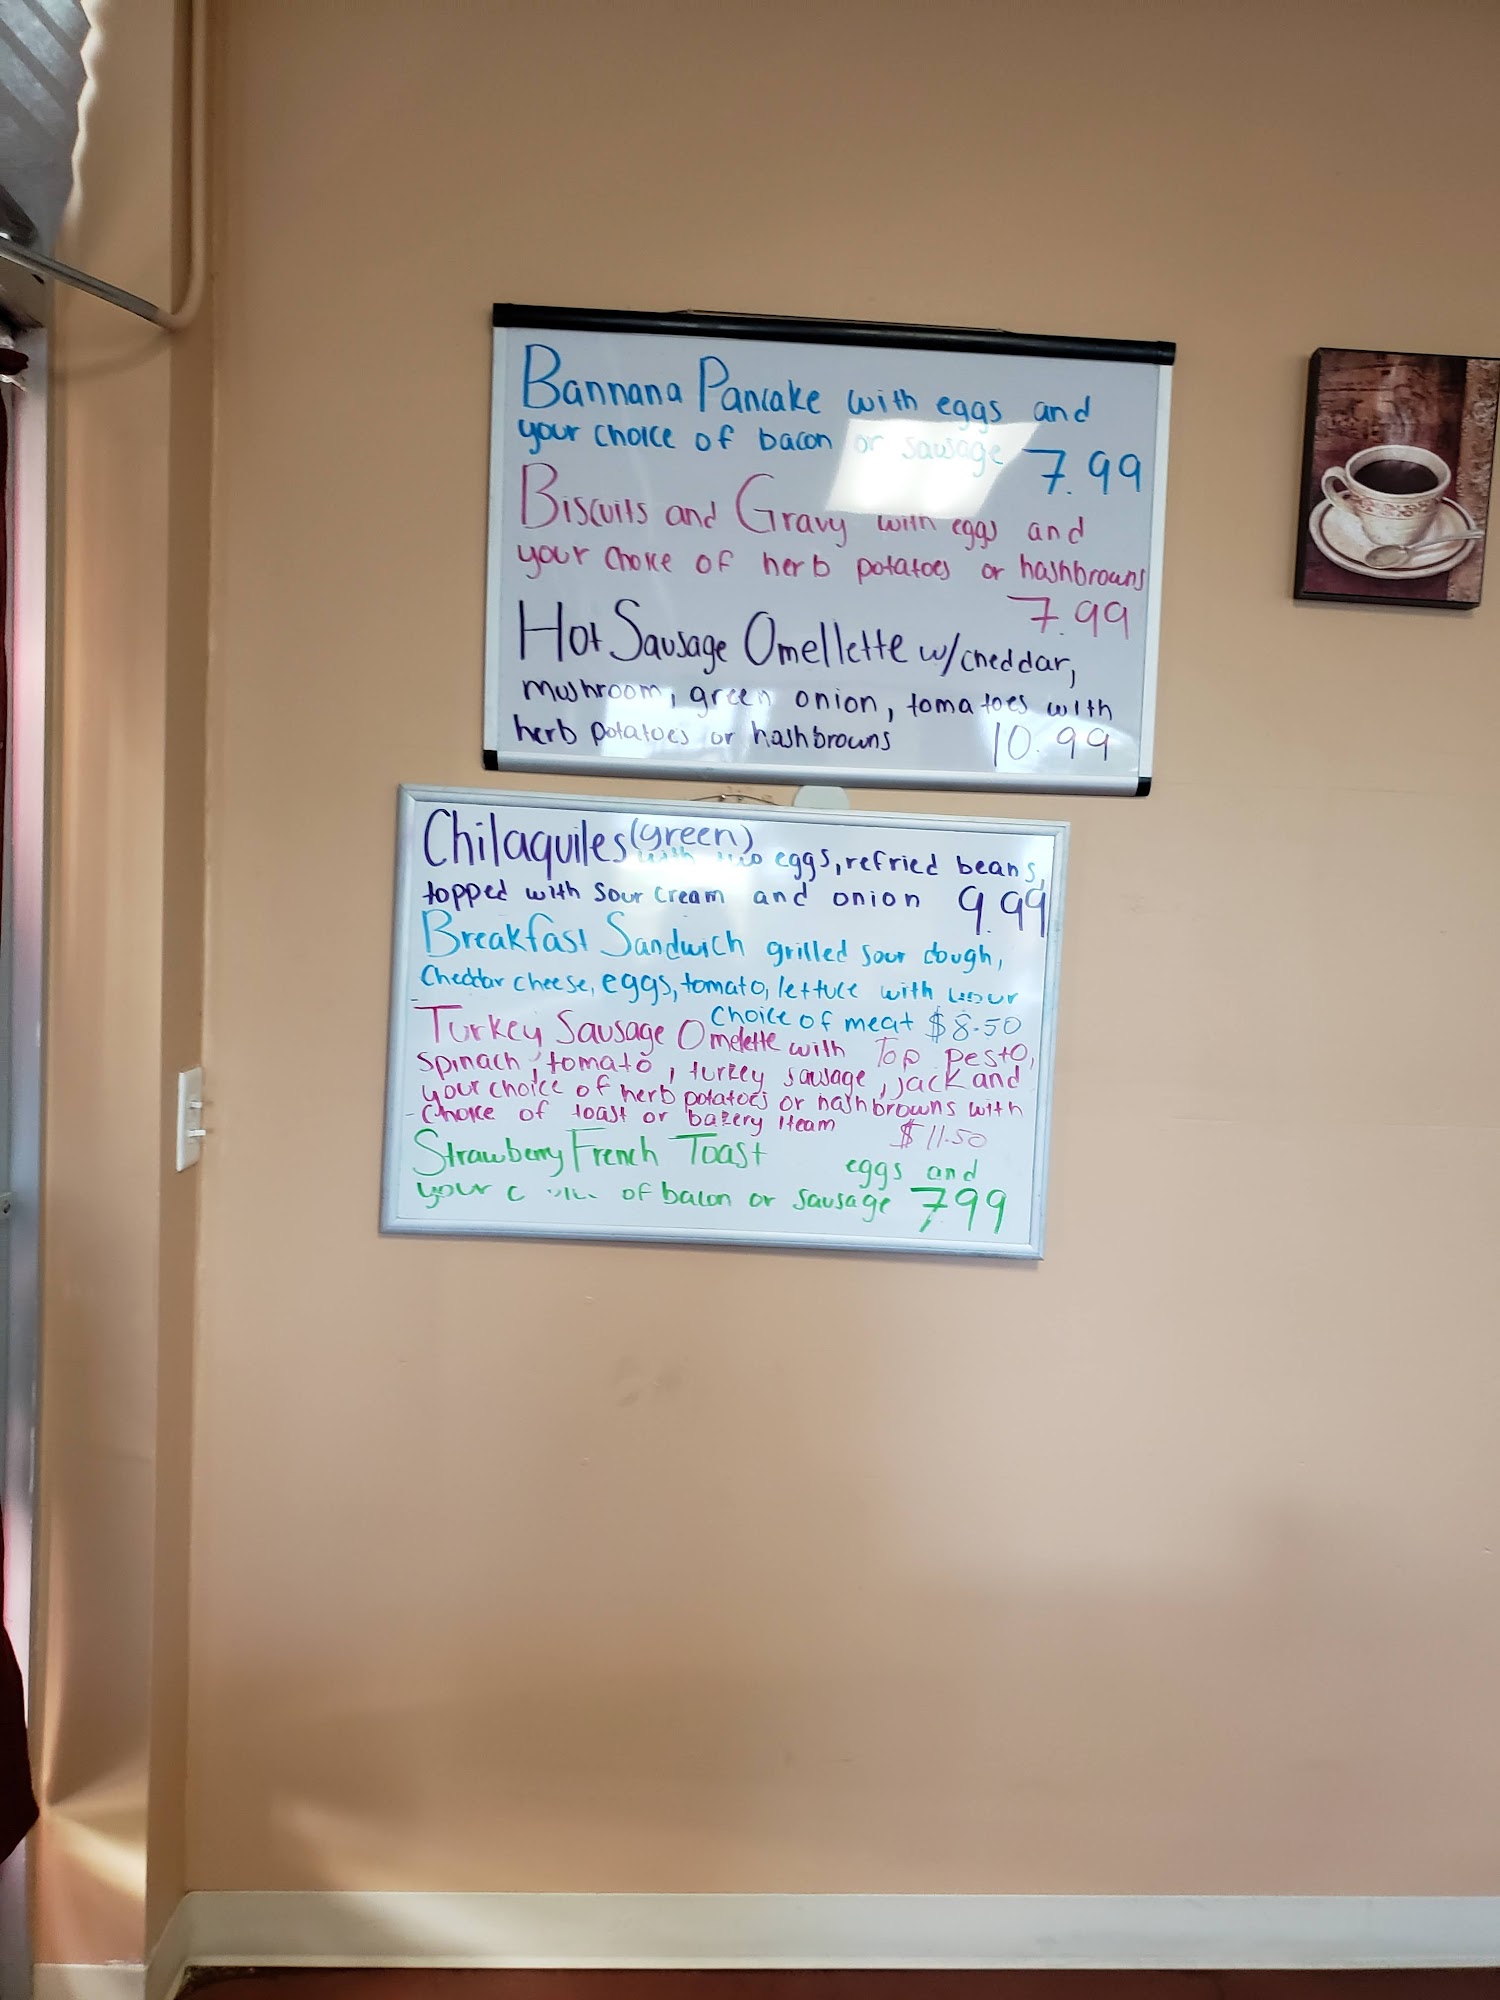 Bannana Pancake with eggs and
your choice of bacon or sausage 7.99
Biscuits and Gravy with eggs and
your choice of herb potatoes or hashbrowns
7.99
Hot Sausage Omellette w/cheddar,
mushroom, green onion, tomatoes with
herb potatoes or hashbrowns 10.99
Chilaquiles (green)
with two eggs, refried beans,
topped with sour cream and onion 9.99
Breakfast Sandwich grilled sour dough,
Cheddar cheese, eggs, tomato, lettuce with
choice of meat $8.50
Turkey Sausage Omelette with Top pesto,
spinach, tomato, turkey sausage, jack and
your choice of herb potatoes or hashbrowns with
choice of toast or bakery item $11.50
Strawberry French Toast eggs and
your of bacon or sausage 7.99